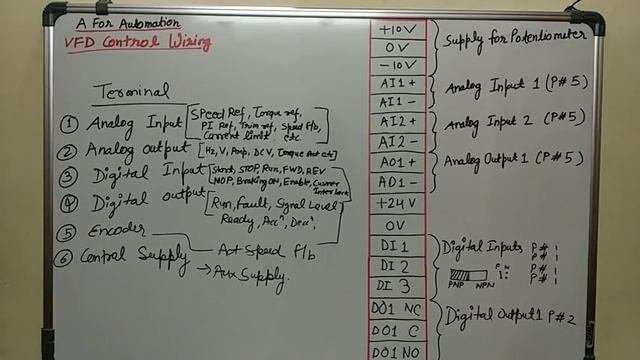 A For Automation
VFD Control Wiring
Terminal
① Analog Input [Speed Ref, Torque ref,
PI Ref, Trim ref, Speed f/b,
Current limit etc
② Analog output [Hz, V, Amp, DC V, Torque Act etc]
③ Digital Input [Start, STOP, Run, FWD, REV
MOP, Braking ON, Enable, Cusmer
Inter lock
④ Digital output [Run, Fault, Signal Level
Ready, Accⁿ, Deccⁿ,
⑤ Encoder
Act Speed f/b
⑥ Control Supply
→ Aux Supply.
+10V
0V
-10V
Supply for Potentiometer
AI1 +
AI1 -
Analog Input 1 (P#5)
AI2 +
AI2 -
Analog Input 2 (P#5)
AO1 +
AO1 -
Analog Output 1 (P#5)
+24V
0V
DI 1
DI 2
DI 3
Digital Inputs P# 1
P# 1
P# 1
P# 1
P N
PNP NPN
DO1 NC
DO1 C
DO1 NO
Digital Output 1 P#2